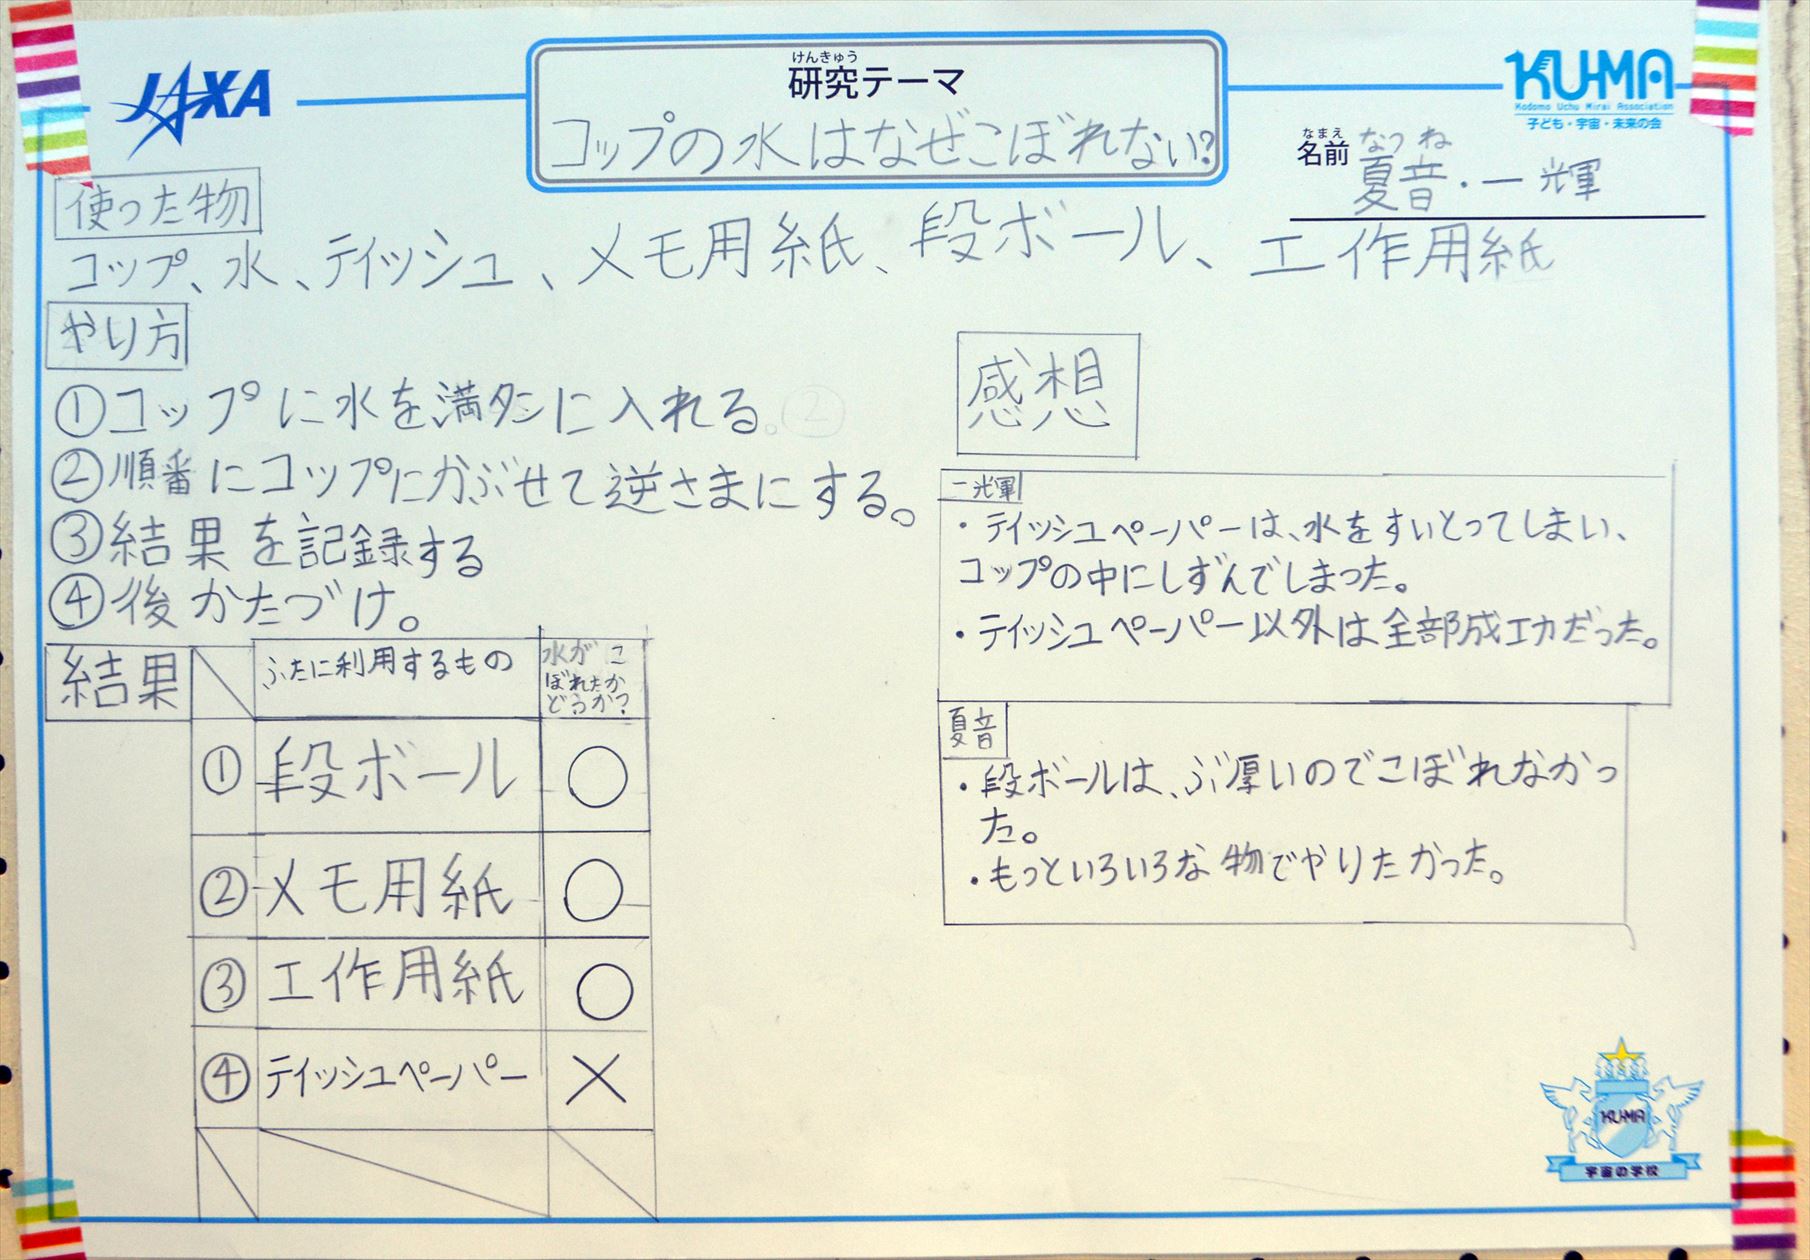 JAXA
けんきゅう
研究テーマ
コップの水はなぜこぼれない?
KU-MA
Kodomo Uchu Mirai Association
子ども・宇宙・未来の会
なまえ なつね
名前 夏音・一輝
使った物
コップ、水、ティッシュ、メモ用紙、段ボール、工作用紙
やり方
①コップに水を満タンに入れる。②
②順番にコップにかぶせて逆さまにする。
③結果を記録する
④後かたづけ。
結果
ふたに利用するもの
水がこ
ぼれたか
どうか?
①段ボール ○
②メモ用紙 ○
③工作用紙 ○
④ティッシュペーパー ×
感想
一輝
・ティッシュペーパーは、水をすいとってしまい、
コップの中にしずんでしまった。
・ティッシュペーパー以外は全部成功だった。
夏音
・段ボールは、ぶ厚いのでこぼれなかっ
た。
・もっといろいろな物でやりたかった。
KU-MA
宇宙の学校